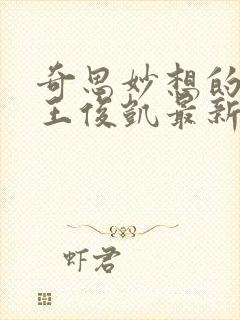 奇思妙想的
王俊凯最新
虾君